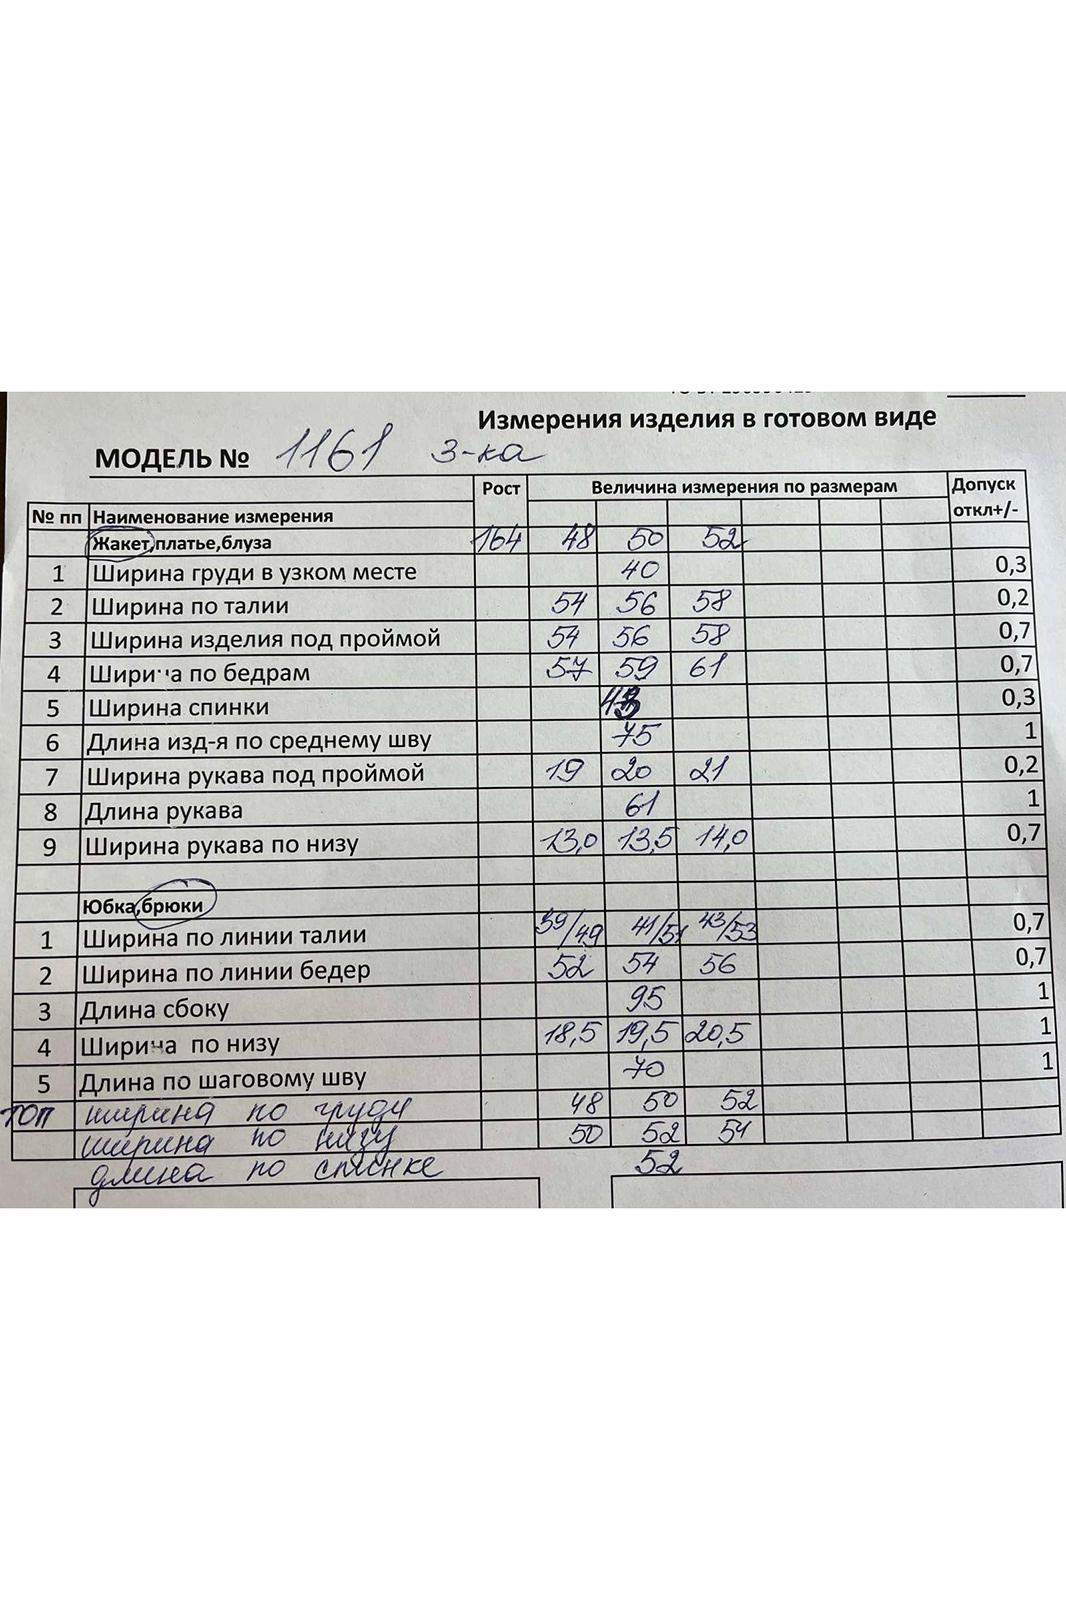 Измерения изделия в готовом виде
МОДЕЛЬ № 1161 3-ка
Рост Величина измерения по размерам Допуск
№ пп Наименование измерения откл+/-
Жакет,платье,блуза 164 48 50 52
1 Ширина груди в узком месте 40 0,3
2 Ширина по талии 54 56 58 0,2
3 Ширина изделия под проймой 54 56 58 0,7
4 Ширина по бедрам 57 59 61 0,7
5 Ширина спинки 0,3
6 Длина изд-я по среднему шву 75 1
7 Ширина рукава под проймой 19 20 21 0,2
8 Длина рукава 61 1
9 Ширина рукава по низу 13,0 13,5 14,0 0,7
Юбка,брюки
1 Ширина по линии талии 39/49 41/51 43/53 0,7
2 Ширина по линии бедер 52 54 56 0,7
3 Длина сбоку 95 1
4 Ширина по низу 18,5 19,5 20,5 1
5 Длина по шаговому шву 70 1
топ ширина по груди 48 50 52
ширина по низу 50 52 54
длина по спинке 52